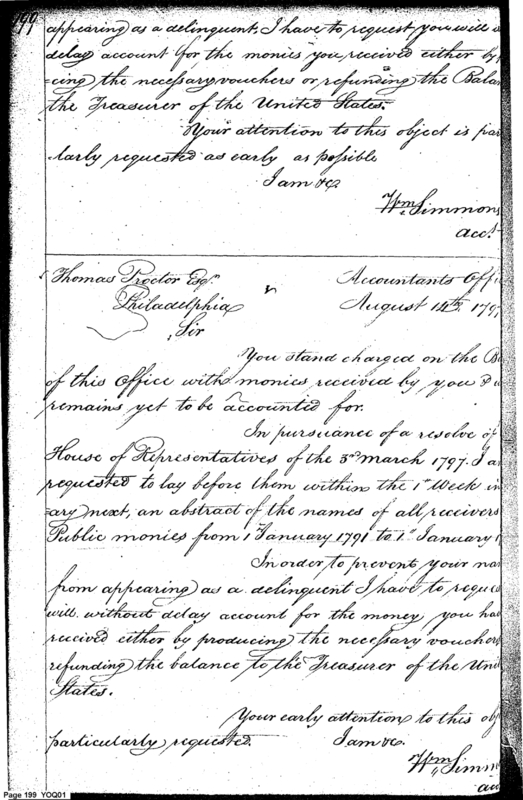 199
appearing as a delinquent, I have to request you will
delay account for the monies you received either by
cing the necessary vouchers or refunding the Balan
the Treasurer of the United States.
Your attention to this object is par
larly requested as early as possible
I am &c
Wm Simmons
acct
Thomas Proctor Esqr. Accountants Offi
Philadelphia August 14th. 179
Sir
You stand charged on the B
of this Office with monies received by you
remains yet to be accounted for.
In pursuance of a resolve of
House of Representatives of the 3rd March 1797. I a
requested to lay before them within the 1st Week in
ary next, an abstract of the names of all receivers
Public monies from 1st January 1791 to 1st January
In order to prevent your na
from appearing as a delinquent I have to reque
will without delay account for the money you ha
received either by producing the necessary vouchers
refunding the balance to the Treasurer of the Uni
States.
Your early attention to this obj
particularly requested. I am &c.
Wm Simm
Page 199 YOQ01